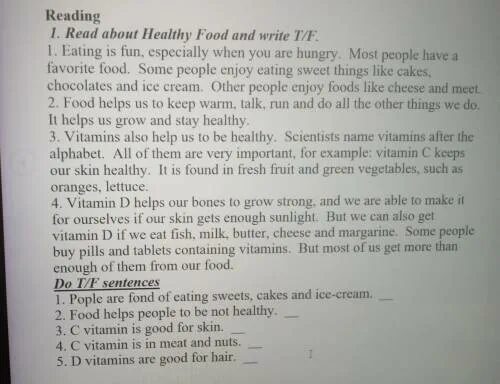 Reading
1. Read about Healthy Food and write T/F.
1. Eating is fun, especially when you are hungry. Most people have a
favorite food. Some people enjoy eating sweet things like cakes,
chocolates and ice cream. Other people enjoy foods like cheese and meet.
2. Food helps us to keep warm, talk, run and do all the other things we do.
It helps us grow and stay healthy.
3. Vitamins also help us to be healthy. Scientists name vitamins after the
alphabet. All of them are very important, for example: vitamin C keeps
our skin healthy. It is found in fresh fruit and green vegetables, such as
oranges, lettuce.
4. Vitamin D helps our bones to grow strong, and we are able to make it
for ourselves if our skin gets enough sunlight. But we can also get
vitamin D if we eat fish, milk, butter, cheese and margarine. Some people
buy pills and tablets containing vitamins. But most of us get more than
enough of them from our food.
Do T/F sentences
1. Pople are fond of eating sweets, cakes and ice-cream. __
2. Food helps people to be not healthy. __
3. C vitamin is good for skin. __
4. C vitamin is in meat and nuts. __
5. D vitamins are good for hair. __